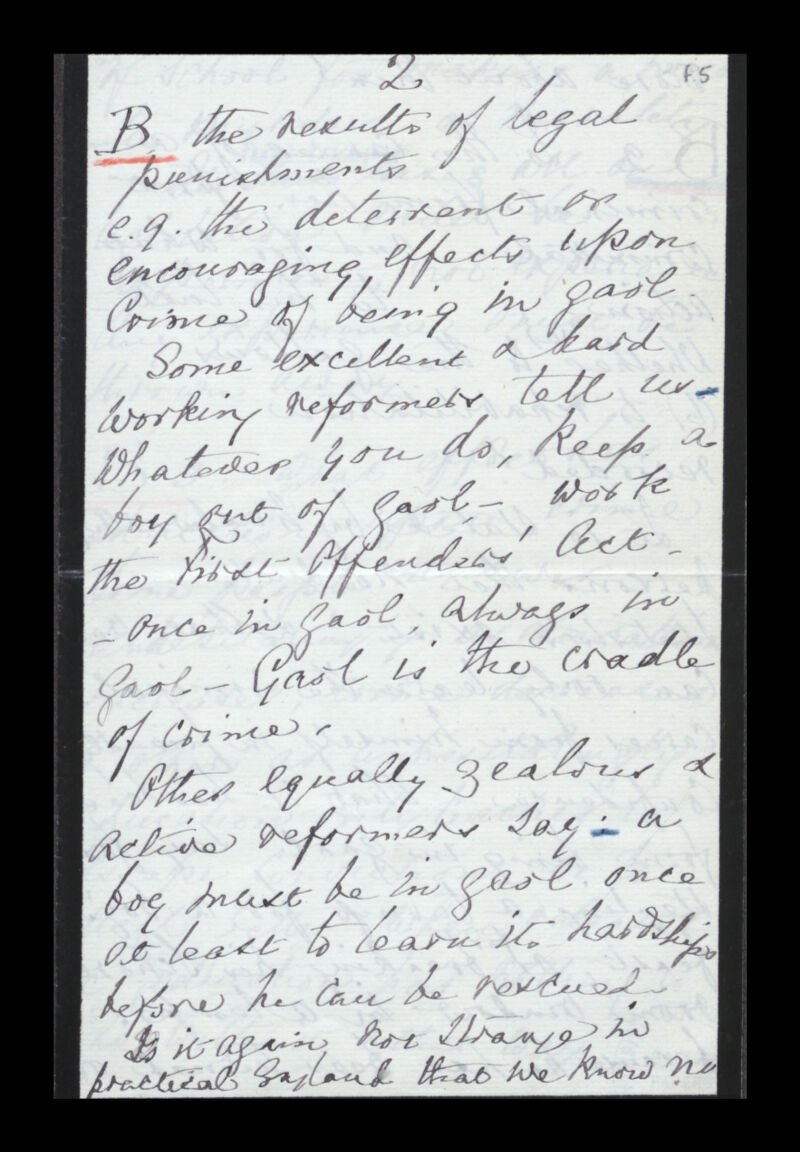 2
f.5
B the results of legal
punishments
e.g. the deterrent or
encouraging effects upon
Crime of being in gaol
Some excellent & hard
working reformers tell us -
Whatever you do, keep a
boy out of gaol - work
the First Offenders' Act -
- once in gaol, always in
gaol - Gaol is the cradle
of crime.
Other equally zealous &
active reformers say - a
boy must be in gaol once
at least to learn its hardships
before he can be rescued.
Is it again not strange in
practical England that we know no